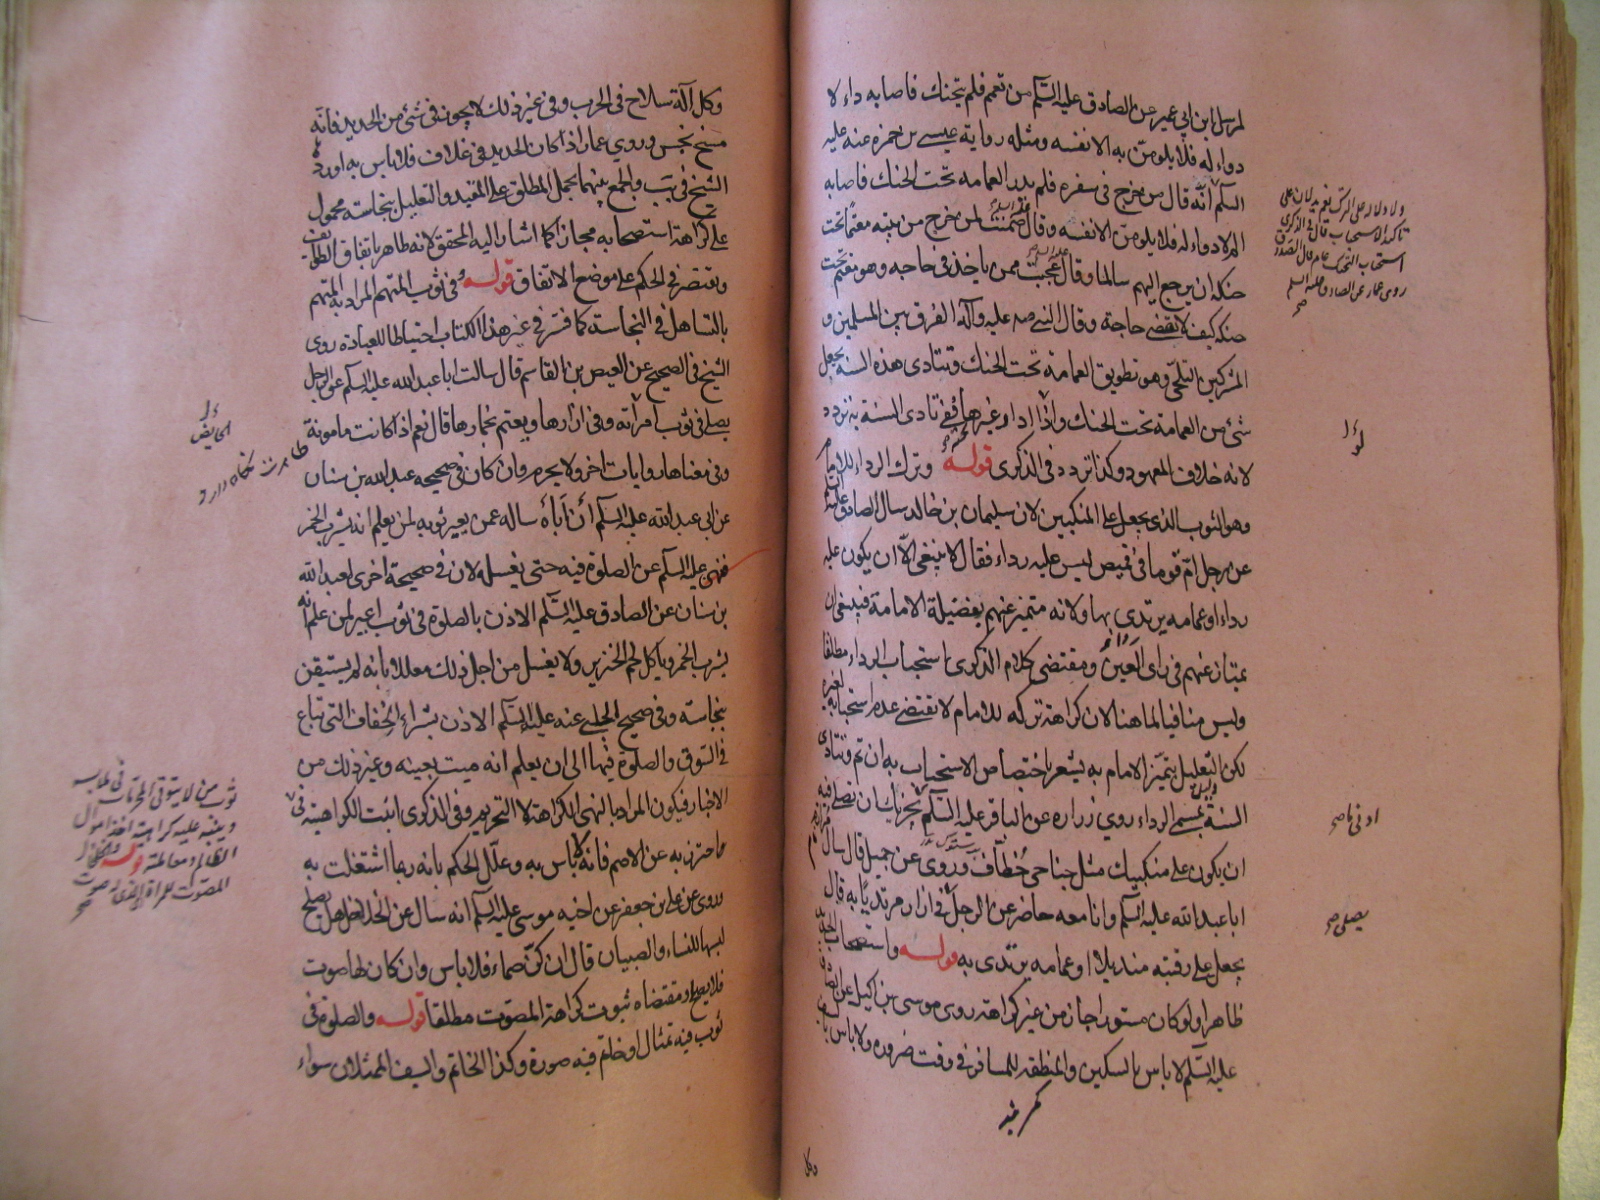 لمرسل ابن ابي عمير عن الصادق عليه السلم من تعمم فلم يتحنك فاصابه داء لا
دواء له فلا يلومن به الا نفسه ومثله رواية عيسى بن حمزه عنه عليه
السلم انه قال من خرج في سفره فلم يدر العمامه تحت الحنك فاصابه
الم لا دواء له فلا يلومن الا نفسه وقال ضمنت لمن خرج من بيته معتما تحت
حنكه ان يرجع اليهم سالما وقال عجبت ممن ياخذ في حاجه وهو معتم تحت
حنكه كيف لا تقضى حاجة وقال النبي صه عليه وآله الفرق بين المسلمين و
المشركين التلحي وهو تطويق العمامة تحت الحنك وتتادى هذه السنة بجعل
شئ من العمامة تحت الحنك واذا اداو غيرها ففي تادى السنة به تردد
لانه خلاف المعهود وكذا تردد في الذكرى قوله وترك الرداء للامام
وهو الثوب الذى يجعل على المنكبين لان سليمان بن خالد سال الصادق عليه السلم
عن رجل ام قوما في قميص ليس عليه رداء فقال لا ينبغى الا ان يكون عليه
رداء او عمامه يرتدى بها ولانه متميز عنهم بفضيلة الامامة فينبغى ان
يمتاز عنهم في راى العين ومقتضى كلام الذكرى استحباب الرداء مطلقا
وليس منافيا لما هنا لان كراهة تركه للامام لا تقتضى عدم استحبابه لغيره
لكن التعليل بتميز الامام به يشعر باختصاص الاستحباب به ان تم وتتادى
السنة بمسمى الرداء روى زراره عن الباقر عليه السلم يجزيك ان تصلى فيه
ان يكون على منكبيك مثل جناحى خطاف وروى عن جميل قال سال مرازم
ابا عبد الله عليه السلم وانا معه حاضر عن الرجل في ازار مرتديا به قال
يجعل على رقبته منديلا او عمامه يرتدى به قوله واستصحاب الحديد
ظاهرا ولو كان مستورا جاز من غير كراهة روى موسى بن اكيل عن الصادق
عليه السلم لا باس بالسكين والمنطقه للمسافر في وقت ضروره ولا باس
كمر بند
وكل
استحباب التحنك عام قال الصدوق
روى عمار عن الصادق عليه السلم
ادنى ما صح
يصلى صح
وكل آلة سلاح في الحرب وفي غير ذلك لا يجوز في شئ من الحديد فانه
مسخ نجس وروى عمار اذا كان الحديد في غلاف فلا باس به اورده
الشيخ في يب والجمع بينهما بحمل المطلق على المقيد والتعليل بنجاسته محمول
على كراهة استصحابه مجازا كما اشار اليه المحقق لانه طاهر باتفاق الطوايف
ونقتصر في الحكم على موضع الاتفاق قوله وفي ثوب المتهم المراد به المتهم
بالتساهل في النجاسة كما فسر في غير هذا الكتاب احتياطا للعبادة روى
الشيخ في الصحيح عن العيص بن القاسم قال سالت ابا عبد الله عليه السلم عن الرجل
يصلى في ثوب امراته وفي ازارها ويعتم بخمارها قال نعم اذا كانت مامونة
وفي معناها روايات اخر ولا يحرم وان كان في صحيحه عبد الله بن سنان
عن ابى عبد الله عليه السلم أن أباه ساله عمن يعير ثوبه لمن يعلم انه يشرب الخمر
فنهى عليه السلم عن الصلوة فيه حتى يغسله لان في صحيحة اخرى لعبد الله
بن سنان عن الصادق عليه السلم الاذن بالصلوة في ثوب اعير لمن علم انه
يشرب الخمر وياكل لحم الخنزير ولا يغسل من اجل ذلك معللا بانه لم يستيقن
نجاسته وفي صحيح الحلبى عنه عليه السلم الاذن بشراء الخفاف التى تباع
في السوق والصلوة فيها الى ان يعلم انه ميت بعينه وغير ذلك من
الاخبار فيكون المراد بالنهى الكراهة لا التحريم وفي الذكرى اثبت الكراهية في
ما احترز به عن الاصم فانه لا باس به وعلل الحكم بانه ربما اشتغلت به
روى عن على بن جعفر عن اخيه موسى عليه السلم انه سال عن الخلاخل هل يصلح
لبسها للنساء والصبيان قال ان كن صماء فلا باس وان كان لها صوت
فلا يصلح ومقتضاه ثبوت كراهة المصوت مطلقا قوله والصلوة في
ثوب فيه تمثال او خاتم فيه صورة وكذا الخاتم والسيف الممثلان سواء
الحايض
ثوب من لا يتوقى المحرمات في ملابسه
وينبه عليه كراهية اخذ اموال
الظالم ومعاملته قوله والخلخال
المصوت للمراة اى الذى له صوت
صح